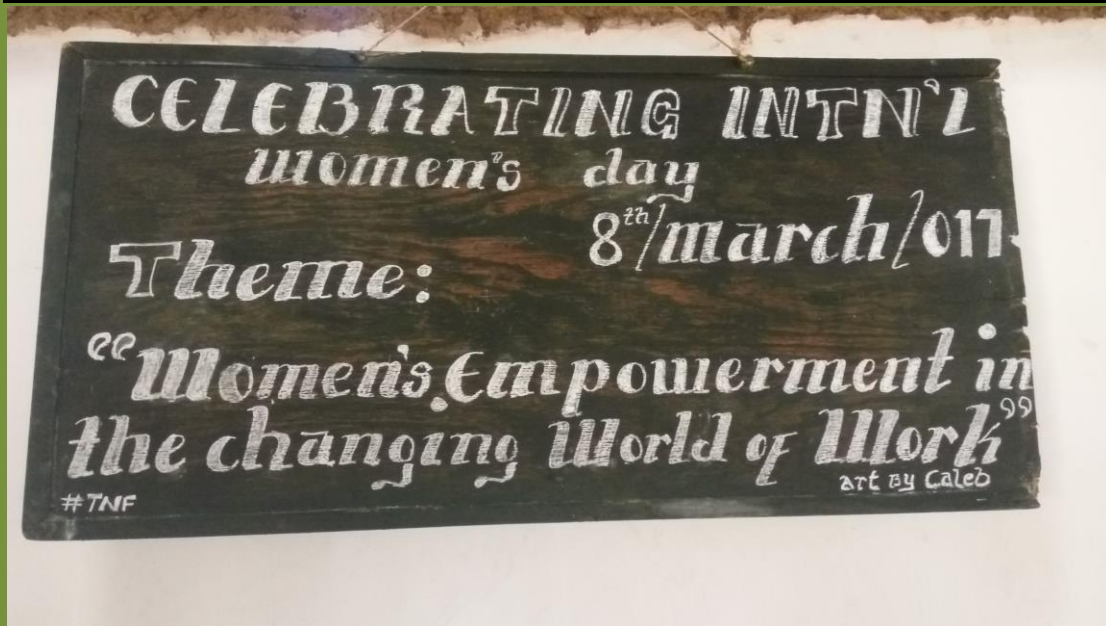 CELEBRATING INTN'L
Women's day
8th/march/017
Theme:
"Women's Empowerment in
the changing World of Work"
art By Caleb
#TNF